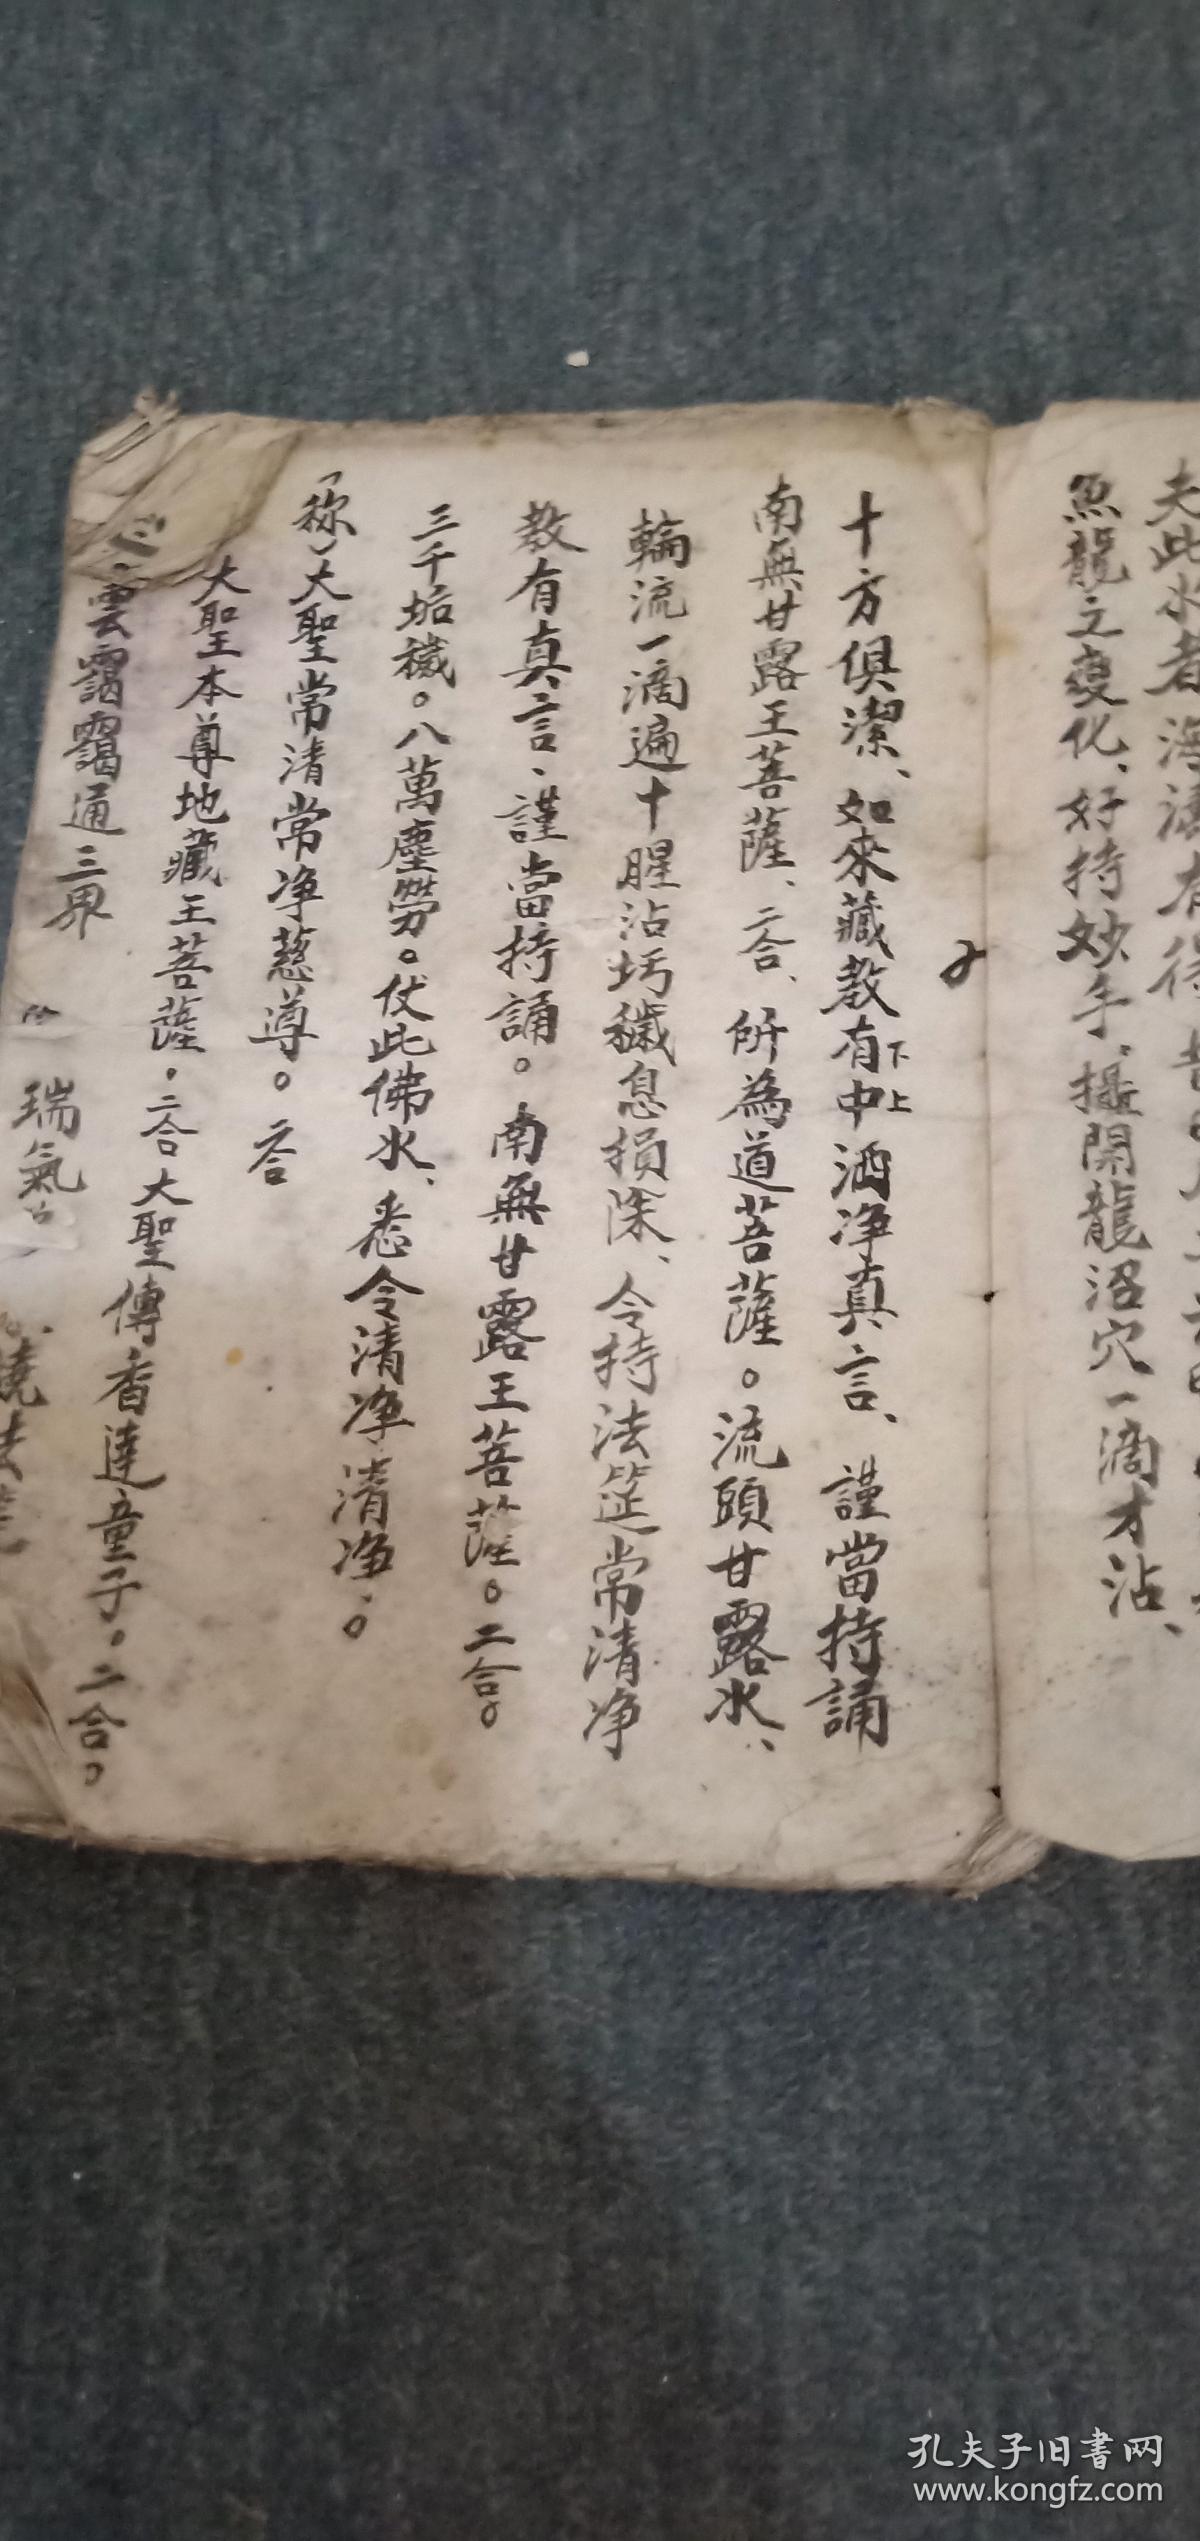 夫此水者
魚龍之變化、好持妙手、攝開龍沼穴一滴才沾、
十方俱潔、如來藏教有中下上洒净真言、謹當持誦
南無甘露王菩薩、二合、所為道菩薩。流頭甘露水、
輪流一滴遍十腥沾圬穢息損除、令持法筵常清净
教有真言、謹當持誦。南無甘露王菩薩。二合。
三千垢穢。八萬塵勞。仗此佛水、悉令清净清净。
(称)大聖常清常净慈尊。二合
大聖本尊地藏王菩薩。二合大聖傳香達童子。二合。
雲靄靄通三界
瑞氣
孔夫子旧书网
www.kongfz.com